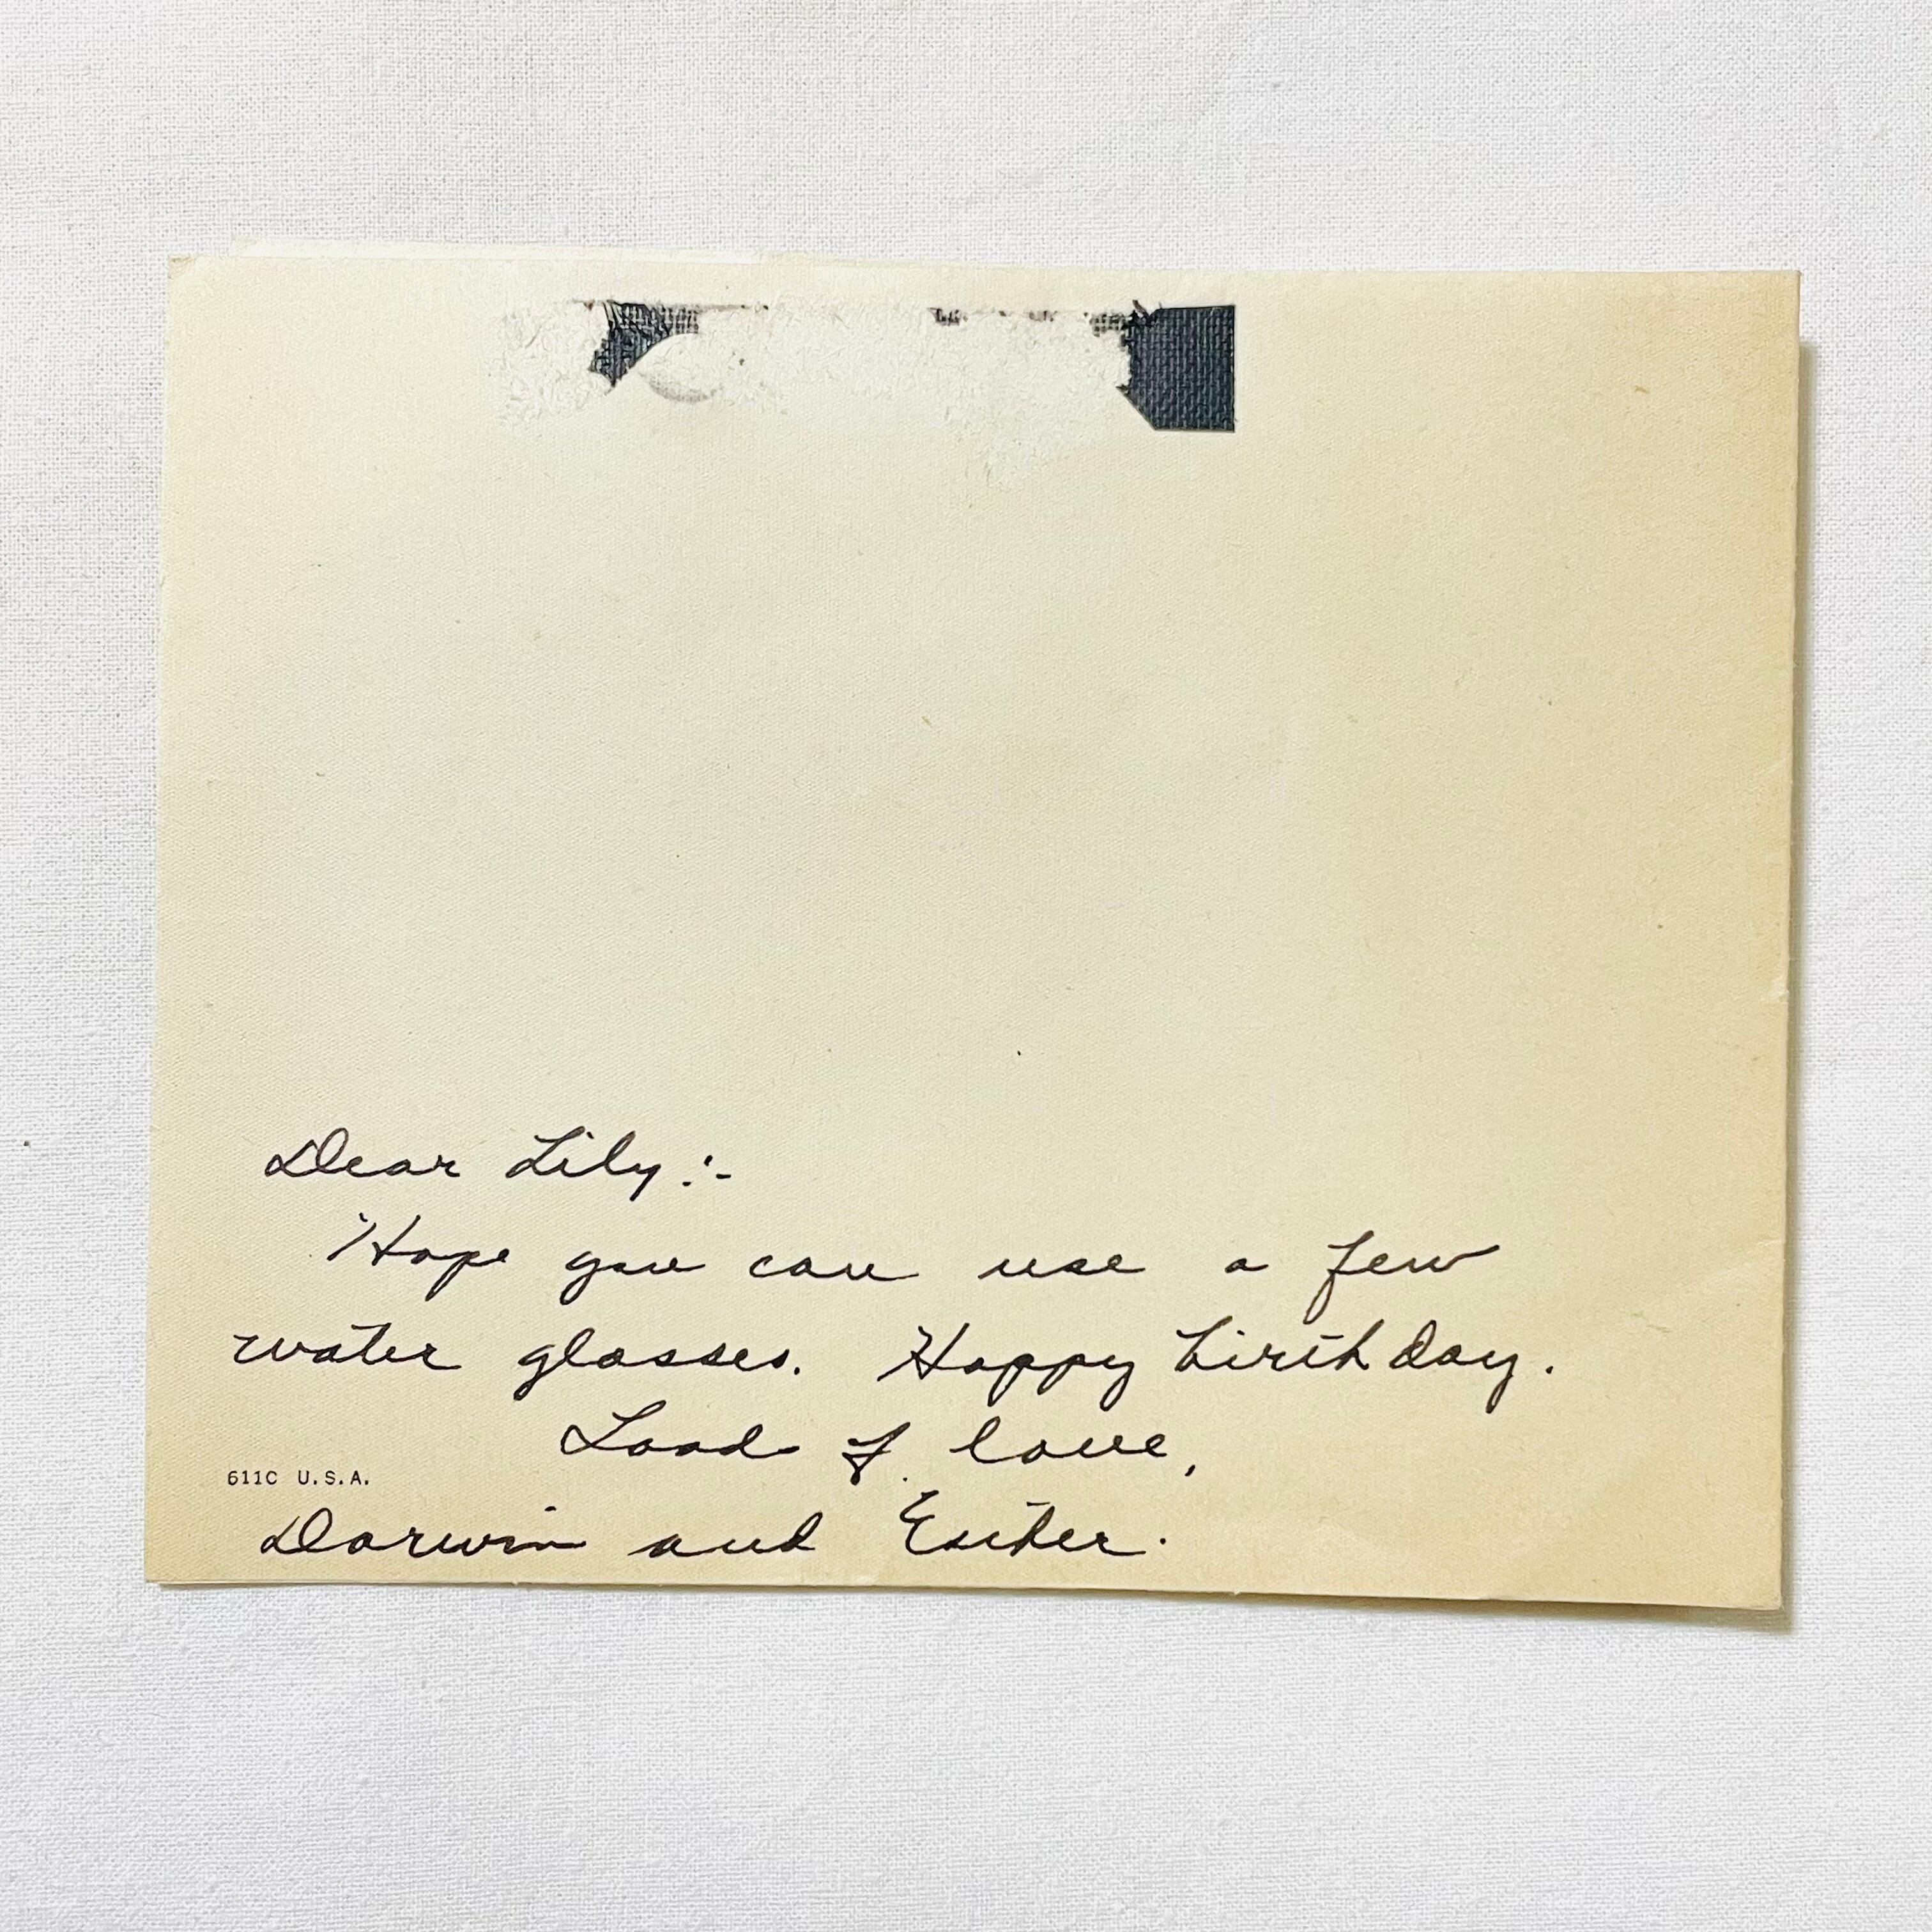 Dear Lily :-
Hope you can use a few
water glasses. Happy birthday.
Loads of love,
611C U.S.A.
Darwin and Esther.